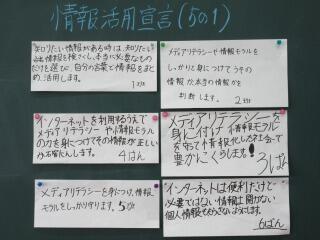 情報活用宣言(5の1)
知りたい情報がある時は、知りたい
情報を検さくし、本当に必要なもの
だけを選び、自分の言葉で情報をまと
め、活用します。
1ぱん
メディアリテラシーや情報モラルを
しっかりと身につけてうその
情報か本当の情報かを
判断します。
2はん
インターネットを利用するうえで
メディアリテラシーや情報モラル
の力を身につけてその情報が正しい
4はん
メディアリテラシーを
身に付け情報モルルを
豊かにくらします!
3ぱん
メディアリテラシーを身につけ、情報
モラルをしっかり守ります。5はん
インターネットは便利だけど
必要ではない情報は開かない
個人情報をもらさないようにします。
6ぱん